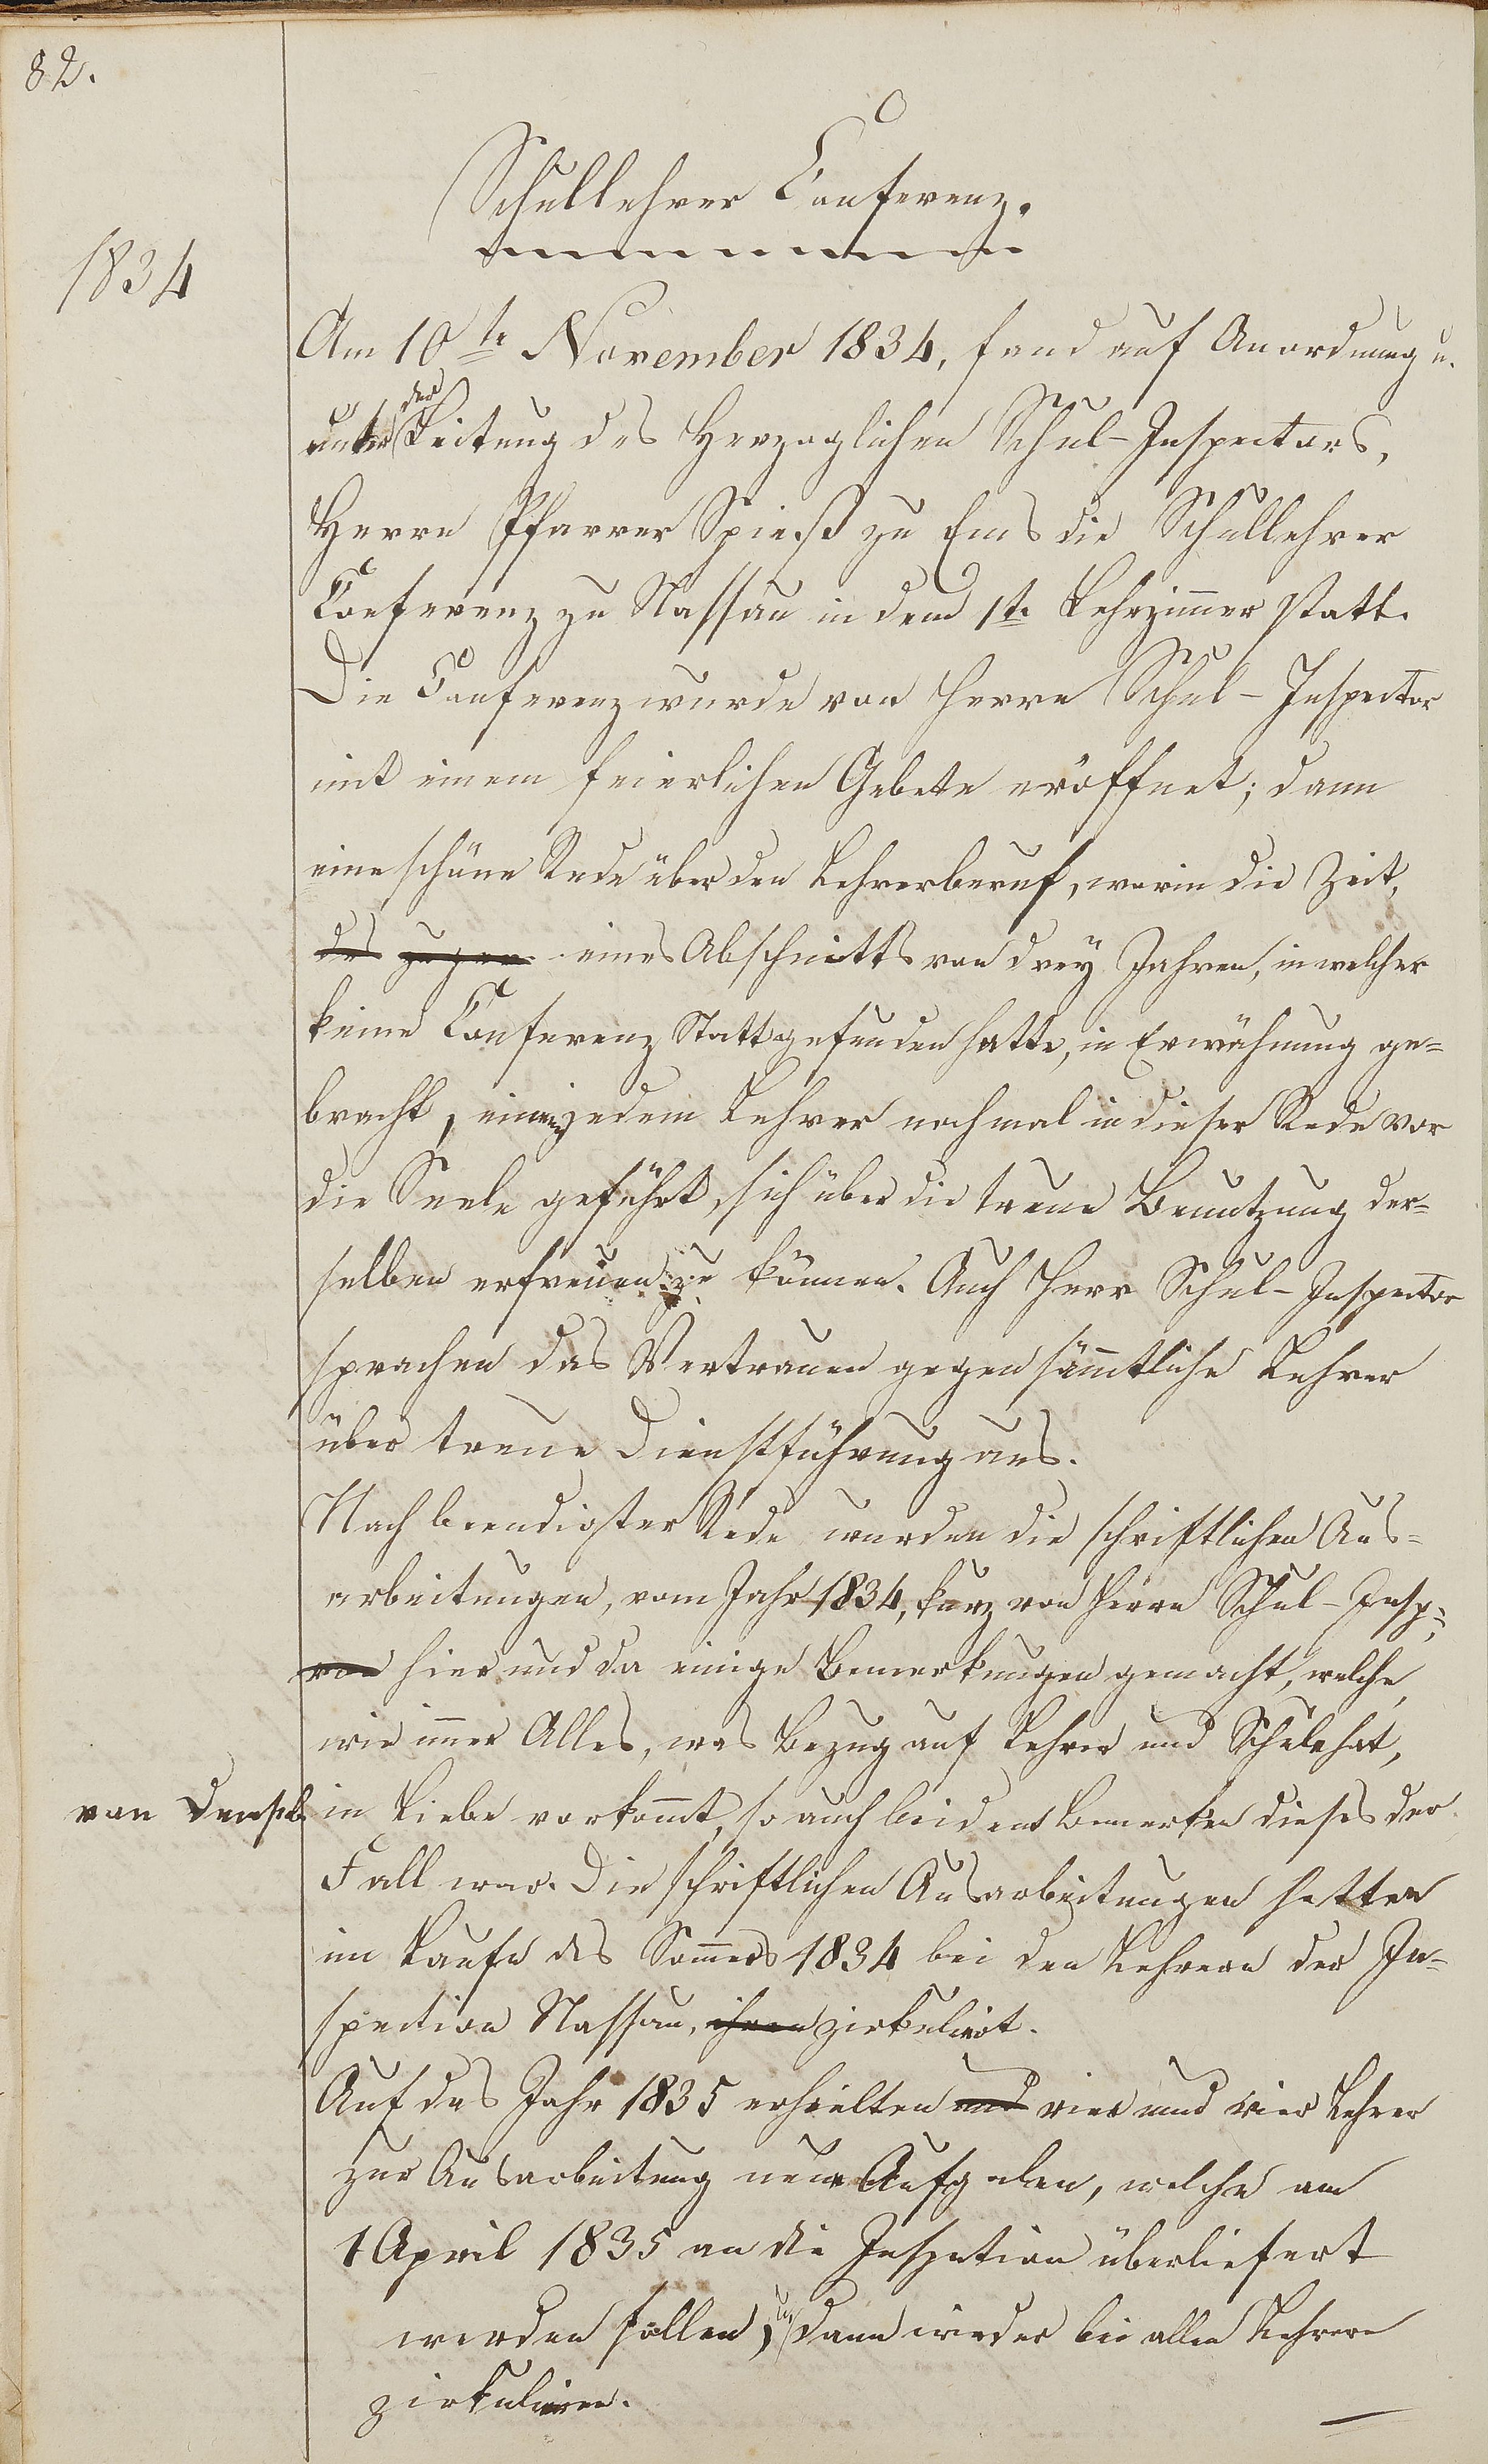 82.
Schullehrer Conferenz.
1834
Am 10te November 1834, fand auf Anordnung u.
unter der Leitung des Herzoglichen Schul-Inspectors,
Herrn Pfarrer Spieß zu Ems die Schullehrer
Conferenz zu Nassau in dem 1te Lehrzimmer statt.
Die Conferenz wurde von Herrn Schul-Inspector
mit einem feierlichen Gebete eröffnet; dann
eine schöne Rede über den Lehrerberuf, worin die Zeit,
des eines Abschnitts von drey Jahren, in welcher
keine Conferenz Statt gefunden hatte, in Erwähnung ge=
bracht, einem jedem Lehrer nochmal in dieser Rede vor
die Seele geführt, sich über die treue Benutzung der=
selben erfreuen zu können. Auch Herr Schul-Inspector
sprachen das Vertrauen gegen sämtliche Lehrer
über treue Dienstführung aus.
Nach beendigter Rede wurden die schriftlichen Aus=
arbeitungen, vom Jahr 1834, kurz von Herrn Schul-Insp:,
von hier und da einige Bemerkungen gemacht, welche,
wie immer Alles, was Bezug auf Lehrer und Schule hat,
von Demselb. in Liebe vorkomt, so auch bei dem Bemerken dieses der
Fall war. Die schriftlichen Ausarbeitungen hatten
im Laufe des Sommers 1834 bei den Lehrern der In=
spection Nassau, ihren zirkulirt.
Auf das Jahr 1835 erhielten und vier und vier Lehrer
zur Ausarbeitung neue Aufgaben, welche am
1 April 1835 an die Inspection überliefert
werden sollen, dann wieder bei allen Lehrern
zirkuliren.